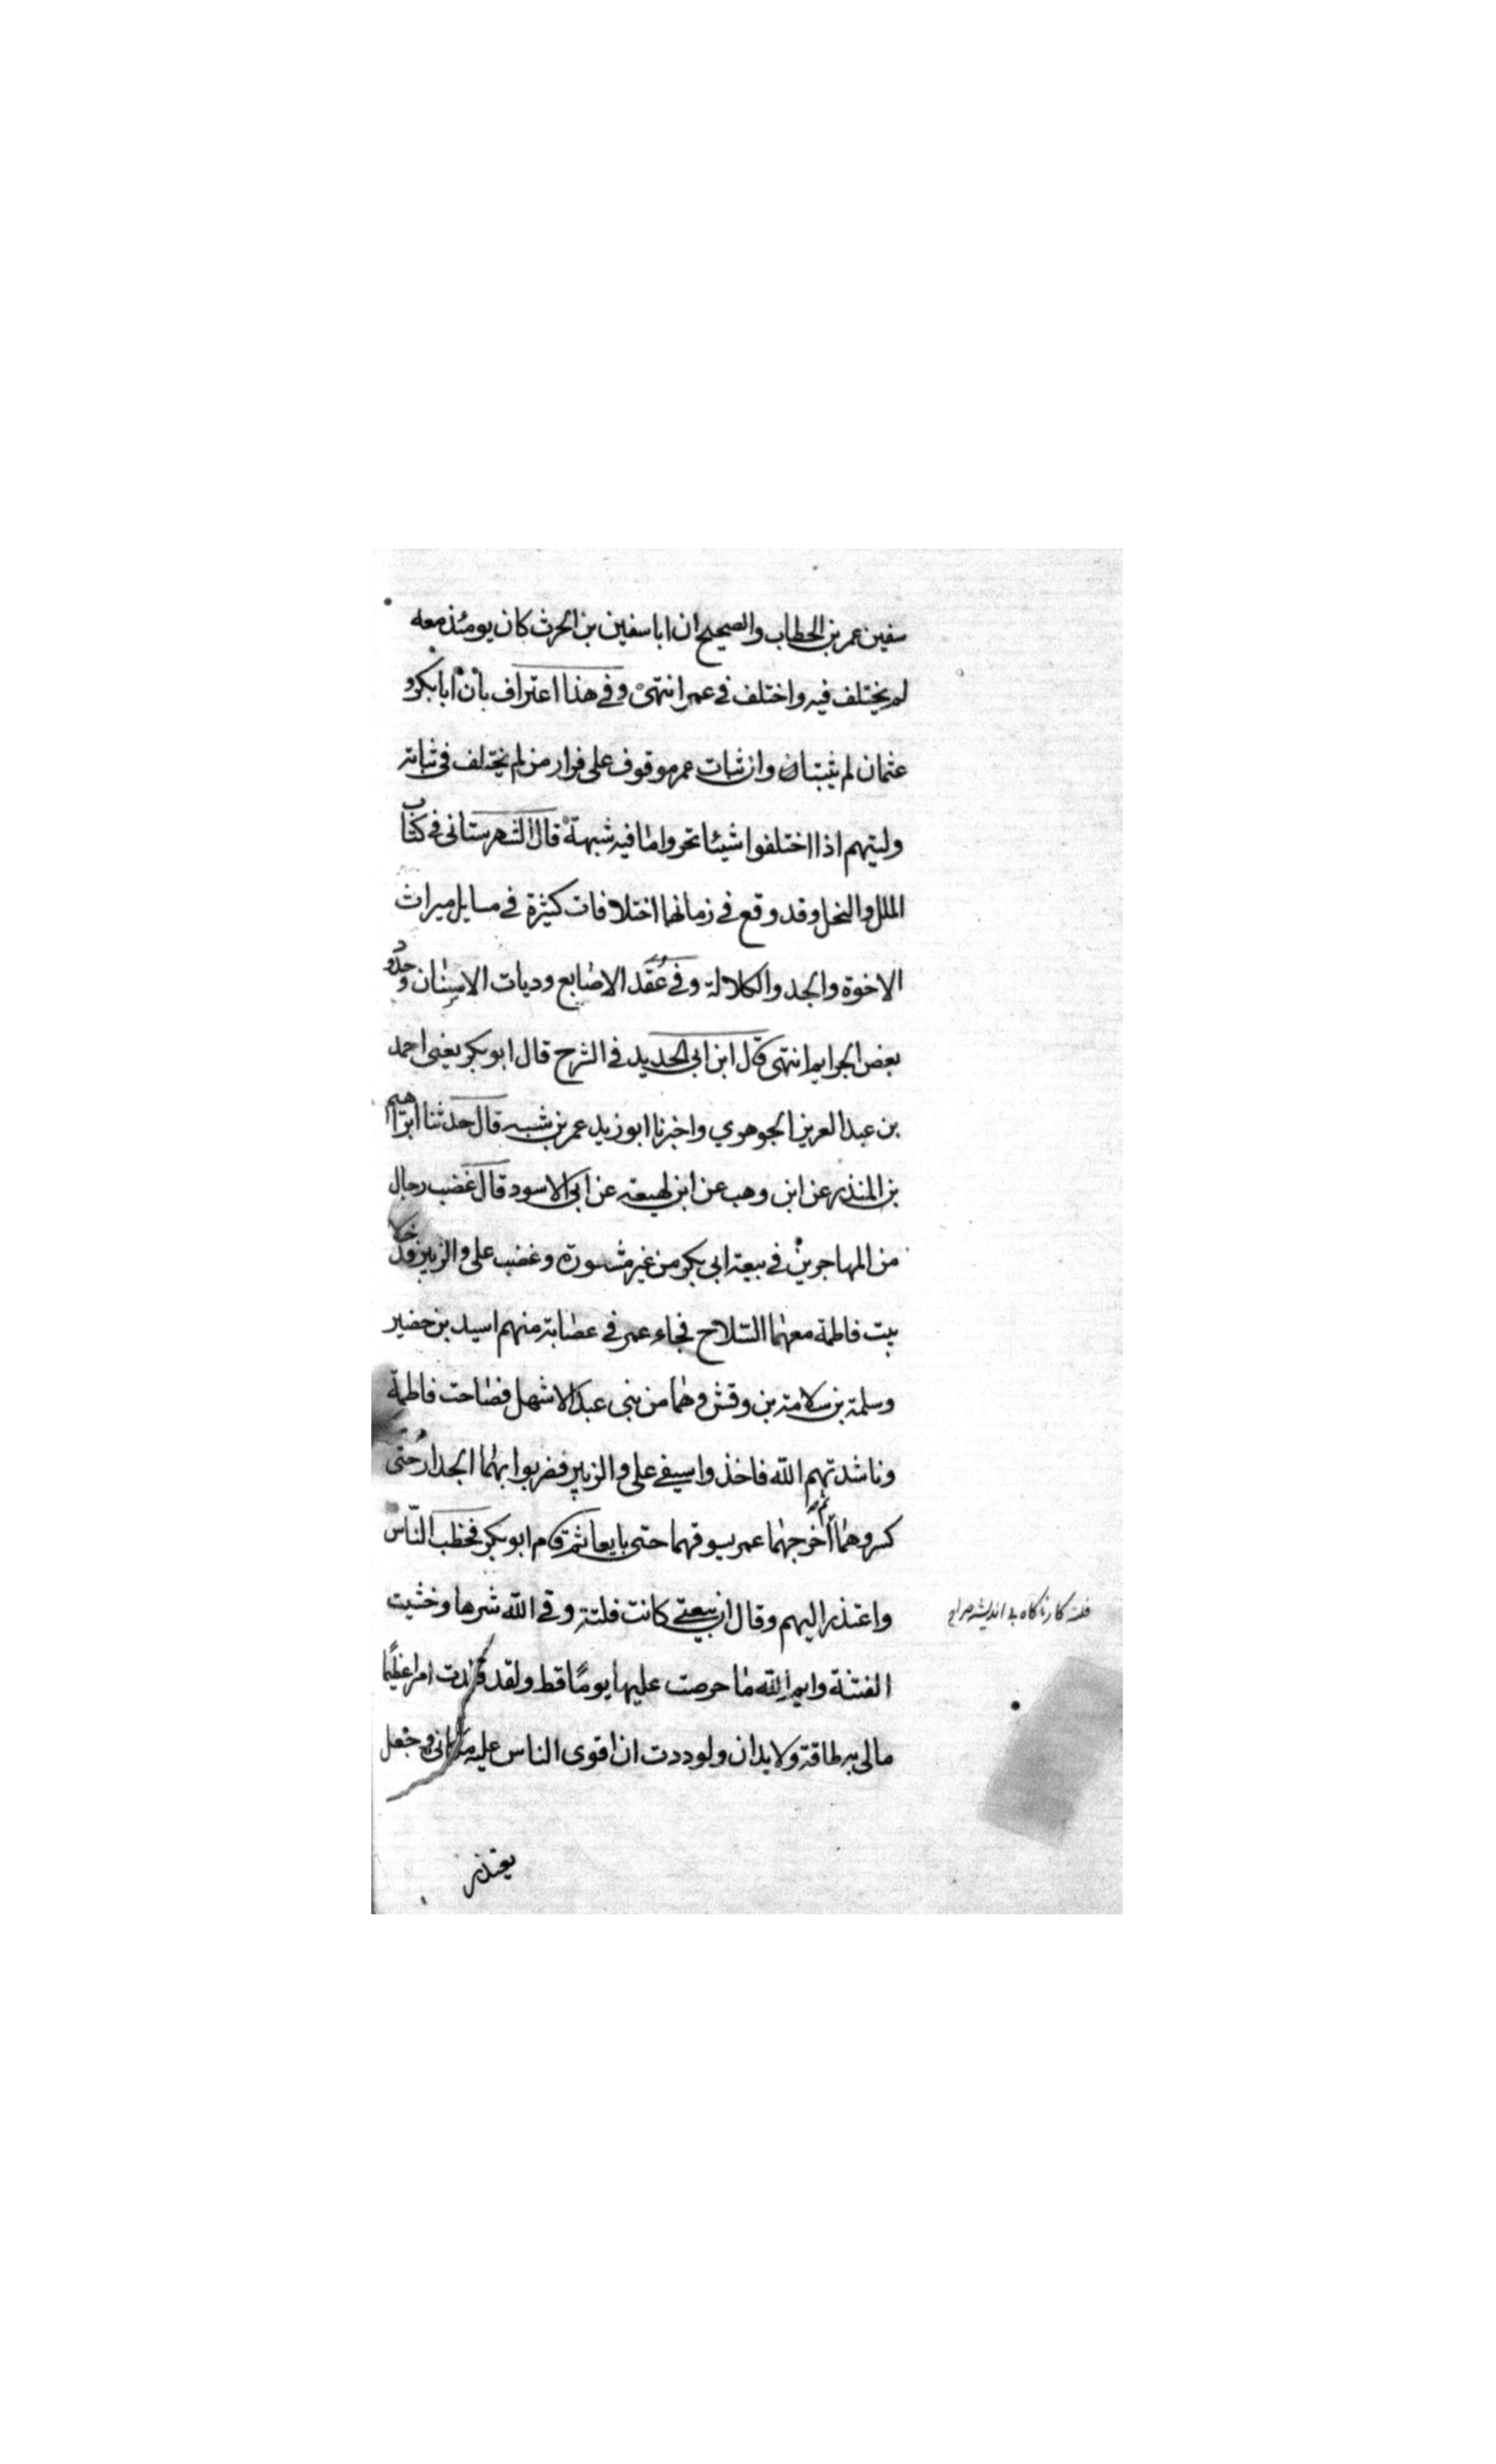 سفين عمر بن الخطاب والصحيح ان ابا سفين بن الحرث كان يومئذ معه
لم يختلف فيه واختلف في عمر انتهى وفي هذا اعتراف بأن ابا بكر و
عثمان لم يثبتان وان ثبات عمر موقوف على فرار من لم يختلف في ثباته
وليتهم اذا اختلفوا شيئا تحروا ما فيه شبهة قال الشهرستاني في كتاب
الملل والنحل وقد وقع في زمانهما اختلافات كثيرة في مسايل ميراث
الاخوة والجد والكلالة وفي عقد الاصابع وديات الاسنان وحدود
بعض الجرايم انتهى قال ابن ابي الحديد في الشرح قال ابو بكر يعني احمد
بن عبد العزيز الجوهري واخبرنا ابو زيد عمر بن شبه قال حدثنا ابراهيم
بن المنذر عن ابن وهب عن ابن لهيعة عن ابي الاسود قال غضب رجال
من المهاجرين في بيعة ابي بكر من غير مشورة وغضب علي والزبير فدخلا
بيت فاطمة معهما السلاح فجاء عمر في عصابة منهم اسيد بن حضير
وسلمة بن سلامة بن وقش وهما من بني عبد الاشهل فصاحت فاطمة
وناشدتهم الله فاخذوا سيفي علي والزبير فضربوا بهما الجدار حتى
كسروهما ثم اخرجهما عمر يسوقهما حتى بايعا ثم قام ابو بكر فخطب الناس
واعتذر اليهم وقال ان بيعتي كانت فلتة وقى الله شرها وخشيت
الفتنة وايم الله ما حرصت عليها يوما قط ولقد قلدت امرا عظيما
مالي به طاقة ولا يدان ولوددت ان اقوى الناس عليه مكاني وجعل
فلته كار ناكاه بى انديشه صراح
يعتذر